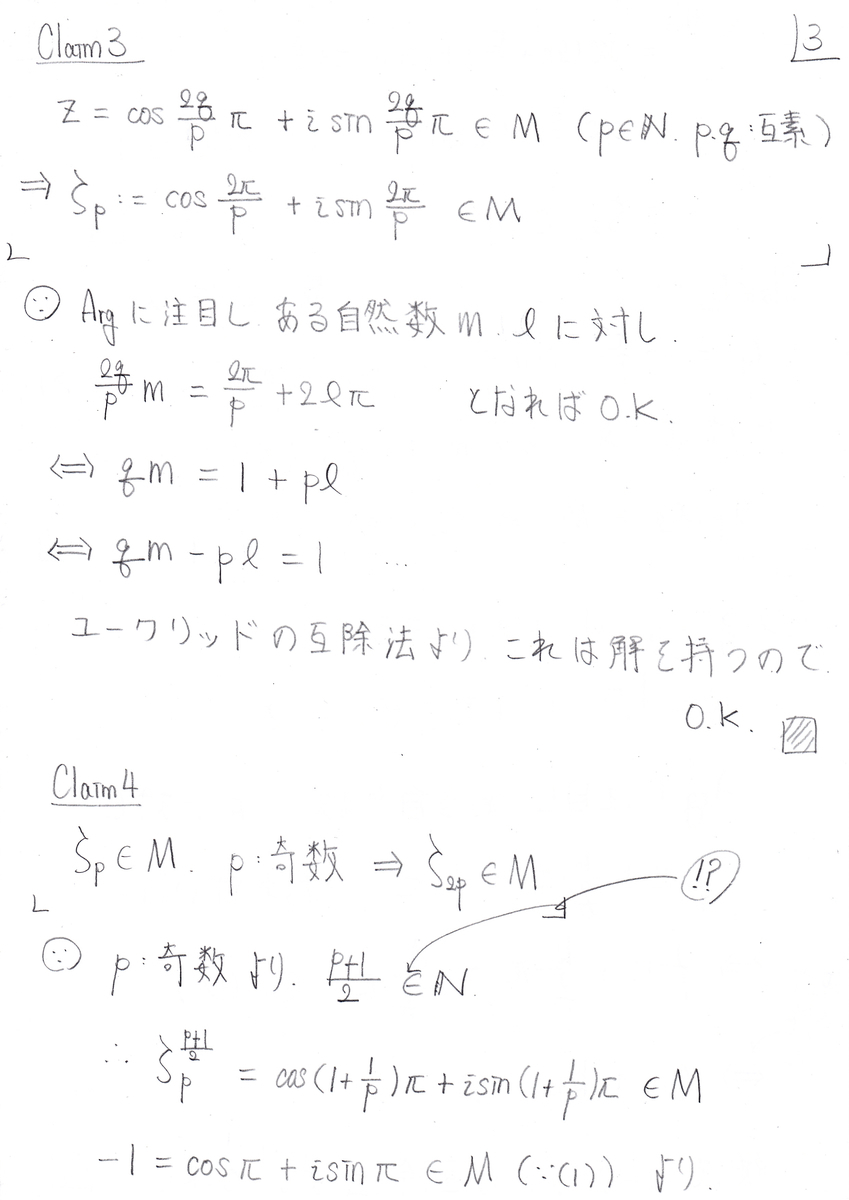 Claim 3
3
z = cos 2q/p π + i sin 2q/p π ∈ M (p∈ℕ. p.q:互素)
⇒ ζ_p := cos 2π/p + i sin 2π/p ∈ M
∵ Argに注目し ある自然数 m. l に対し.
2q/p m = 2π/p + 2lπ となれば O.K.
⇔ qm = 1 + pl
⇔ qm - pl = 1 ...
ユークリッドの互除法より これは解を持つので
O.K.
Claim 4
ζ_p ∈ M. p:奇数 ⇒ ζ_2p ∈ M
!?
∵ p:奇数より. p+1/2 ∈ ℕ.
∴ ζ_p^{p+1/2} = cos(1+1/p)π + i sin(1+1/p)π ∈ M
-1 = cosπ + i sinπ ∈ M (∵(1)) より.